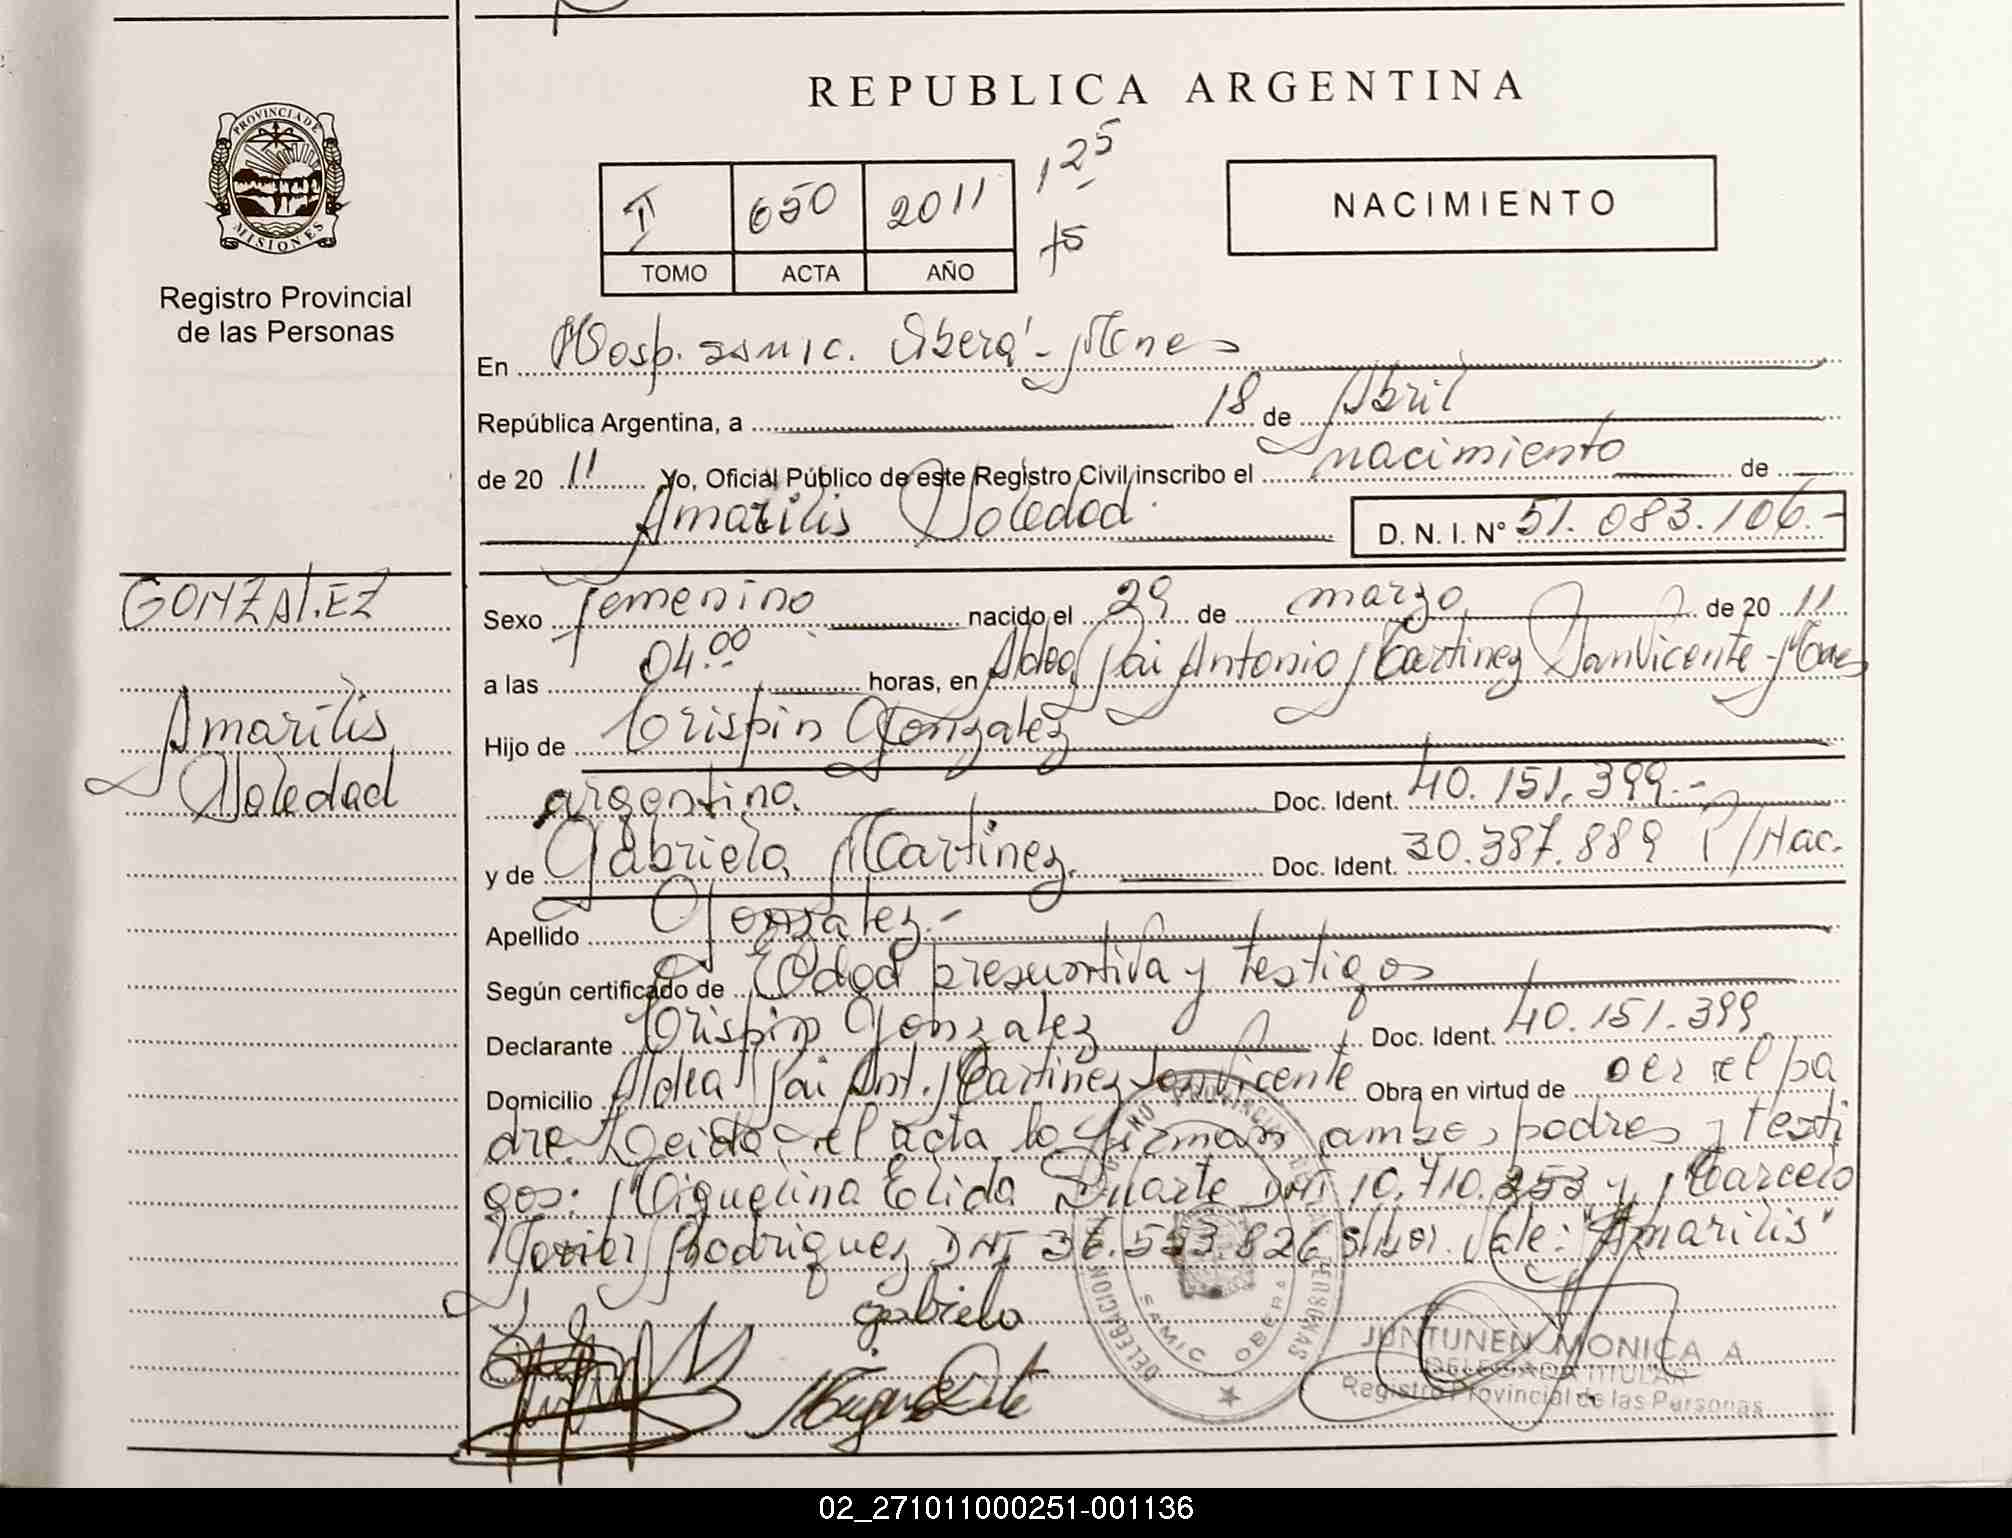 REPUBLICA ARGENTINA
PROVINCIA DE
MISIONES
Registro Provincial
de las Personas
II 650 2011
TOMO ACTA AÑO
125
75
NACIMIENTO
En Hosp. SAMIC. Oberá - Mnes
República Argentina, a 18 de Abril
de 20 11 Yo, Oficial Público de este Registro Civil inscribo el nacimiento de
Amarilis Soledad
D. N. I. N° 51.083.106.-
GONZALEZ
Amarilis
Soledad
Sexo femenino nacido el 29 de marzo de 20 11
a las 04.00 horas, en Aldea Pai Antonio Martinez San Vicente - Mnes
Hijo de Crispin Gonzalez
argentino. Doc. Ident. 40.151.399.-
y de Gabriela Martinez. Doc. Ident. 30.387.889 P/Nac.
Apellido Gonzalez.-
Según certificado de Edad presuntiva y testigos
Declarante Crispin Gonzalez Doc. Ident. 40.151.399
Domicilio Aldea Pai Ant. Martinez San Vicente Obra en virtud de ser el pa
dre. Leida el acta lo firman ambos padres y testi
gos: Miguelina Elida Duarte DNI 10.710.353 y Marcelo
Javier Rodriguez DNI 36.553.826 S/bor. Vale: "Amarilis"
gabriela
DELEGACION SAMIC OBERA
JUNTUNEN MONICA A
DELEGADA TITULAR
Registro Provincial de las Personas
02_271011000251-001136